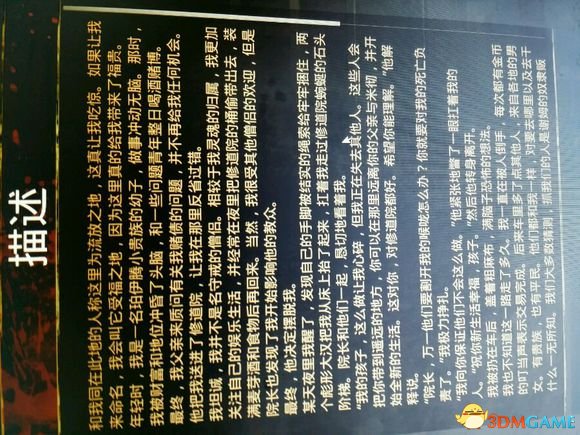 描述
和我同在此地的人称这里为流放之地，这真让我吃惊。如果让我
来命名，我会叫它受福之地，因为这里真的给我带来了福贵。
年轻时，我是一名珀伊腾小贵族的幼子，做事冲动无脑。那时，
我被财富和地位冲昏了头脑，和一些问题青年整日喝酒赌博。
最终，我父亲来质问有关我赌债的问题，并不再给我任何机会。
他把我送进了修道院，让我在那里反省过错。
我坦诚，我并不是名守戒的僧侣。相较于我灵魂的归属，我更加
关注自己的娱乐生活，并经常在夜里把修道院的桶偷带出去，装
满麦芽酒和食物后再回来。当然，我很受其他僧侣的欢迎，但是
院长也发现了我开始影响他的教众。
最终，他决定摆脱我。
某天夜里我醒了，发现自己的手脚被结实的绳索给牢牢捆住，两
个彪形大汉把我从床上抬了起来，扛着我走过修道院蜿蜒的石头
阶梯。院长和他们一起，恳切地看着我。
“我的孩子，这么做让我心碎，但我正在失去其他人。这些人会
把你带到遥远的地方，你可以在那里远离你的父亲与米彻，并开
始全新的生活。这对你，对修道院都好。希望你能理解。”他解
释说。
“院长，万一他们要割开我的喉咙怎么办？你就要对我的死亡负
责了。”我极力挣扎。
“我向你保证他们不会这么做。”他紧张地瞥了一眼扛着我的
人。“祝你新生活幸福，孩子。”然后他转身离开。
我被扔在车后，盖着粗麻布，满脑子恐怖的想法。
我也不知道这一路走了多久。我一直在被人倒手，每次都有金币
的叮当声表示交易完成。后来车里多了点其他人，来自各地的男
女，有贵族，也有平民。他们都和我一样，对要去哪里以及去干
什么一无所知。我们大多数猜测，抓我们的人是谓姆的奴隶贩
3DMGAME